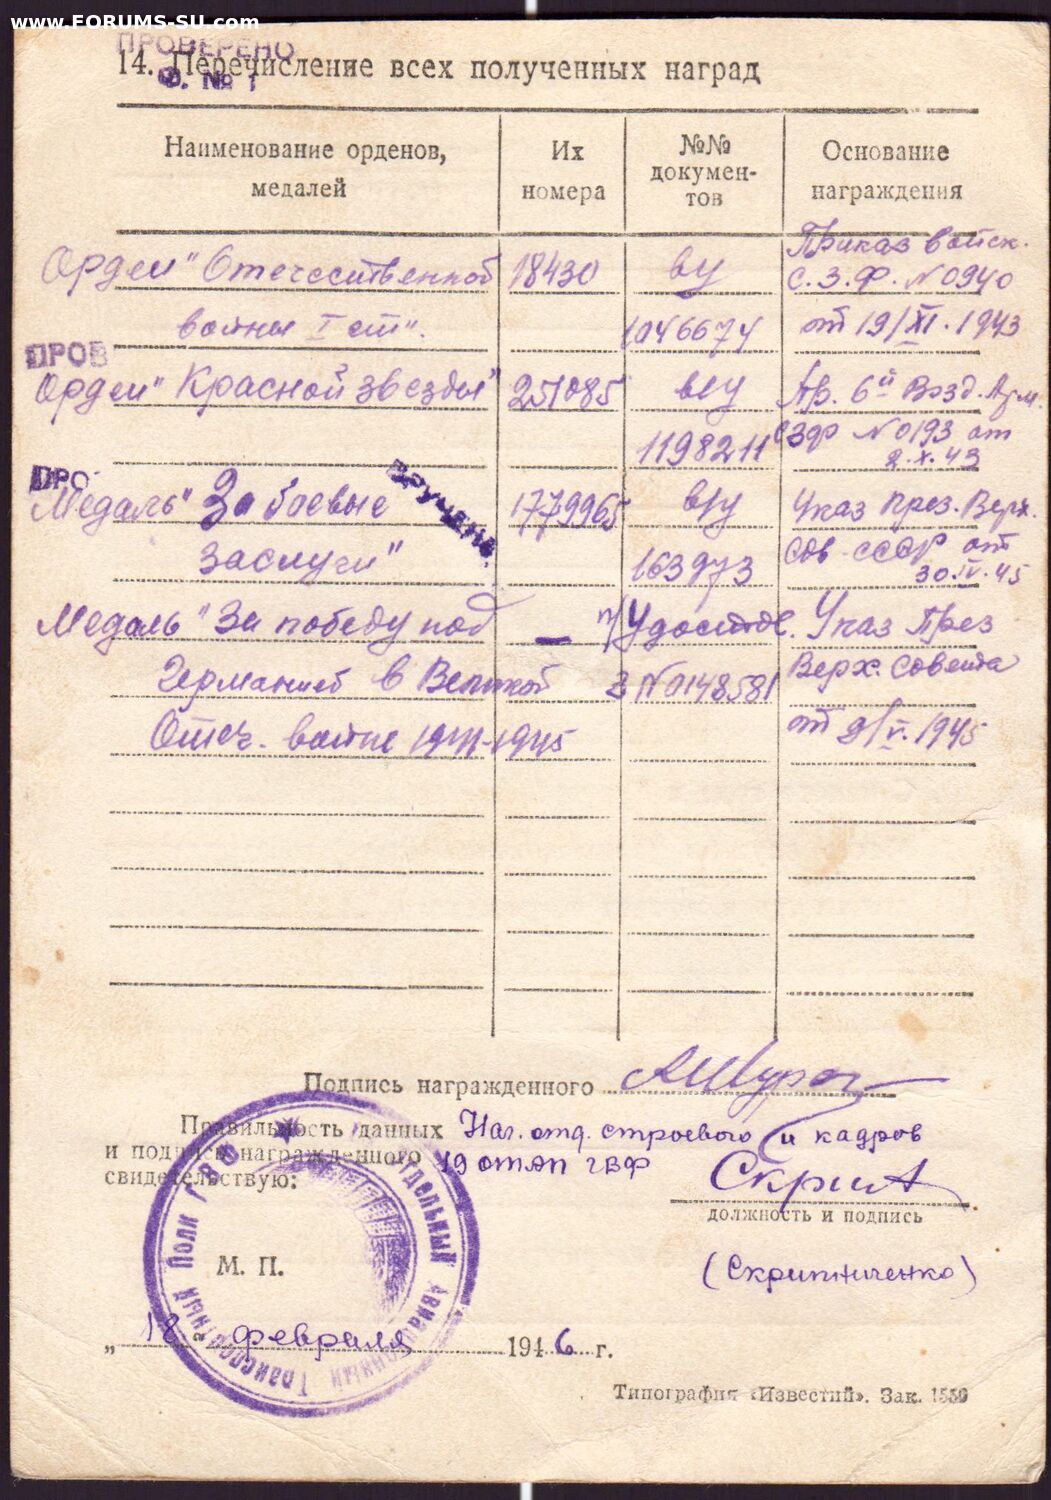 www.FORUMS-SU.com
ПРОВЕРЕНО
14. Перечисление всех полученных наград
Ф. № 1
Наименование орденов, медалей
Их номера
№№ документов
Основание награждения
Орден "Отечественной 18430 в/у Приказ войск. С.З.Ф. №0940
войны I ст". 1046674 от 19/XI.1943
ПРОВ
Орден "Красной звезды" 257085 в/у Пр. 6й Возд. Арм.
1198211 СЗФ №0193 от 2.X.43
ПРО
ВРУЧЕНА
Медаль "За боевые 1779965 в/у Указ През. Верх.
заслуги" 163973 Сов. СССР от 30.IV.45
Медаль "За победу над — Удостов. Указ През
Германией в Великой З №0148581 Верх. Совета
Отеч. войне 1941-1945 от 9/V.1945
Подпись награжденного
Правильность данных Нач. отд. строевого и кадров
и подписи награжденного 19 отап ГВФ
свидетельствую:
должность и подпись
М. П.
(Скрипниченко)
Отдельный Авиационный Транспортный Полк ГВФ
„18" февраля 1946 г.
Типография «Известий». Зак. 1559